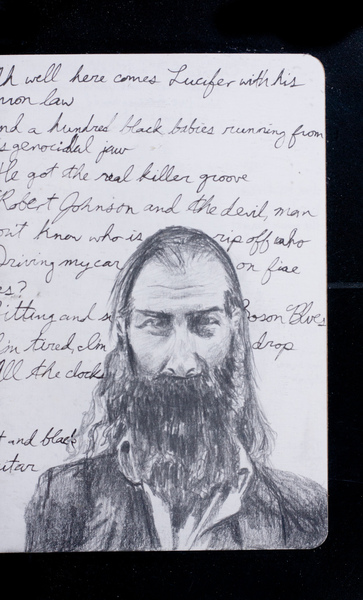 Ah well here comes Lucifer with his
non law
nd a hundred black babies running from
s genocidal jaw
He got the real killer groove
Robert Johnson and the devil, man
on't know who is rip off who
Driving my car on fire
es?
itting and s oson Blues
I'm tired, I'm drop
All the clocks
t and black
uitar